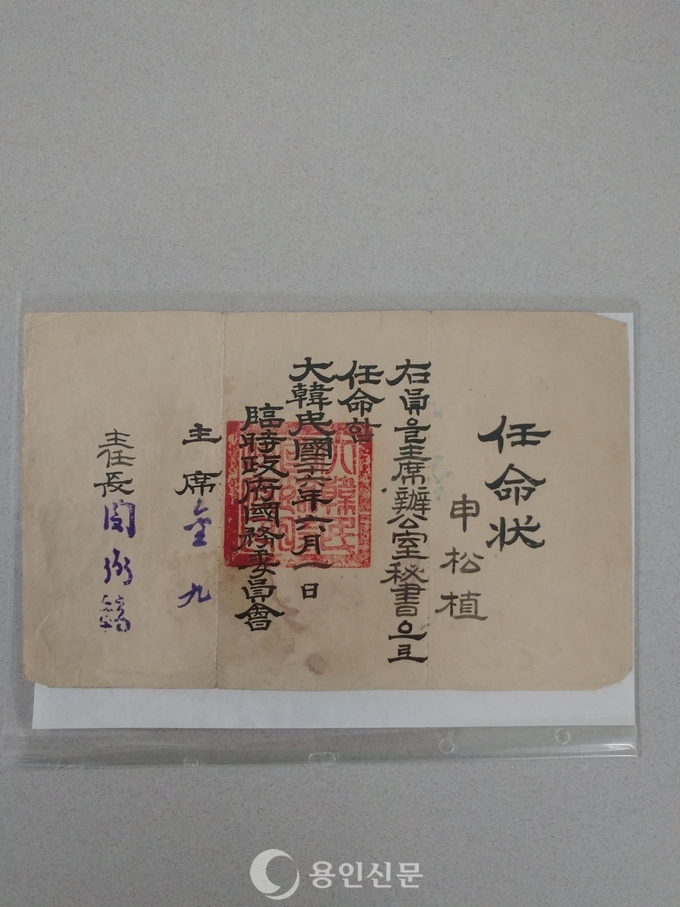 任命状
申松植
右員을主席辦公室秘書으로
任命함
大韓民國廿六年六月一日
臨時政府國務委員會
主席 金九
主任長 閔弼鎬
용인신문